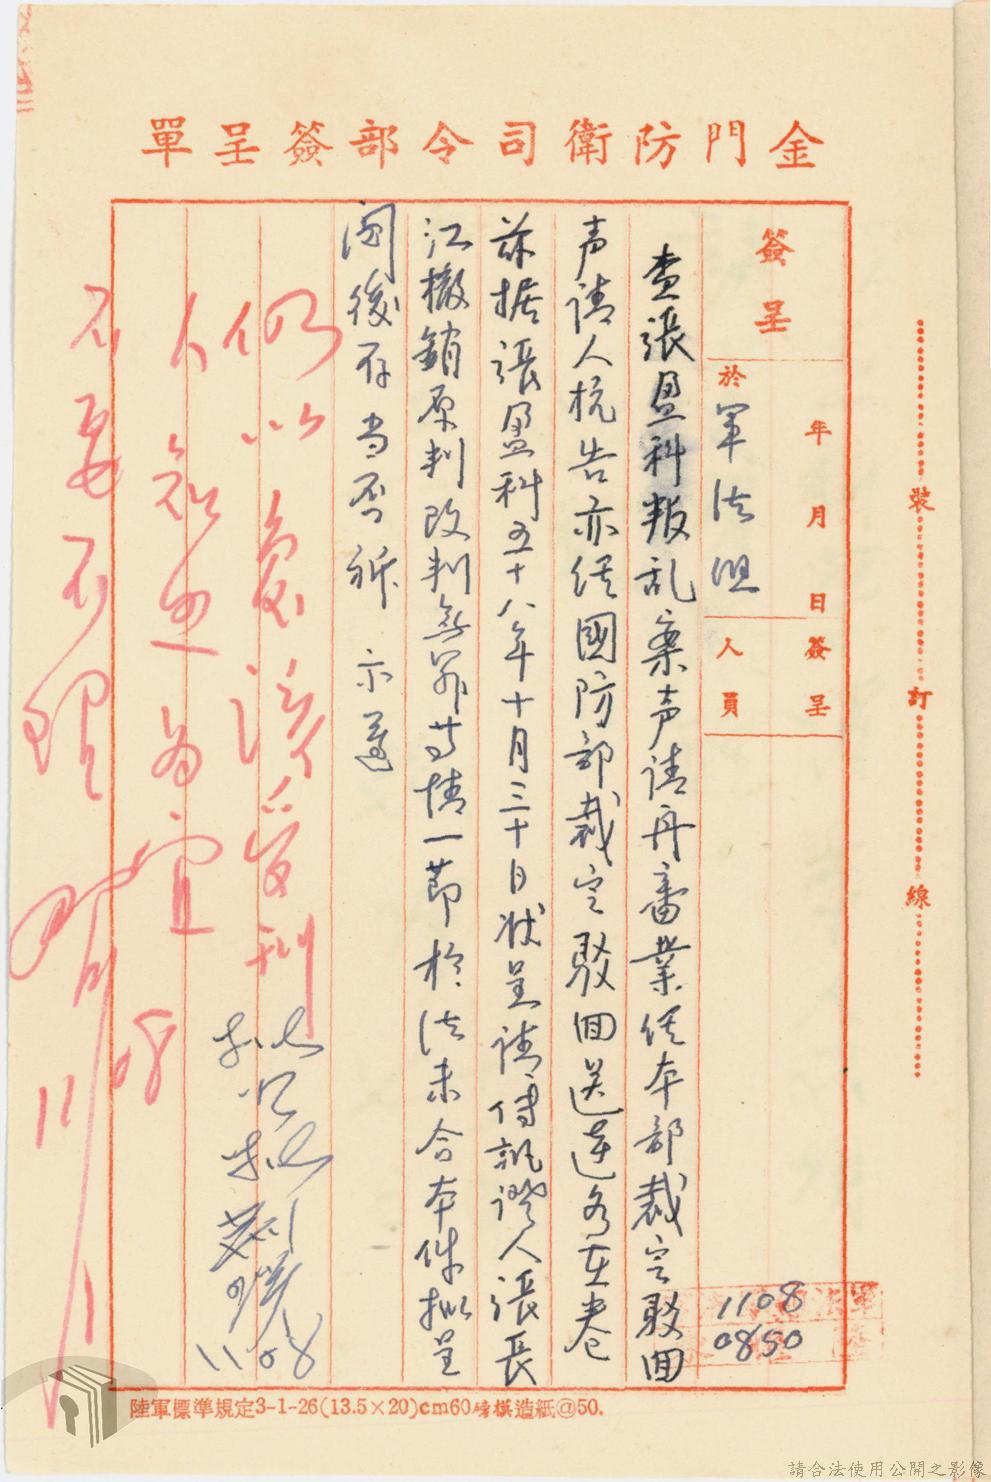 金門防衛司令部簽呈單
簽呈
年 月 日
於軍法組
簽呈
人員
查張盈科叛乱案声请再審業经本部裁定駁回
声请人抗告亦经國防部裁定駁回送達各在卷
茲据張盈科五十八年十月三十日狀呈请傳訊證人張長
江撤銷原判改判無罪等情一節於法未合本件擬呈
閱後存當否祈 示遵
擬如擬
1108
仍以
人
為宜
不要不理
1108
1108
0850
裝
訂
線
陸軍標準規定3-1-26(13.5×20)cm60磅模造紙@50.
請合法使用公開之影像